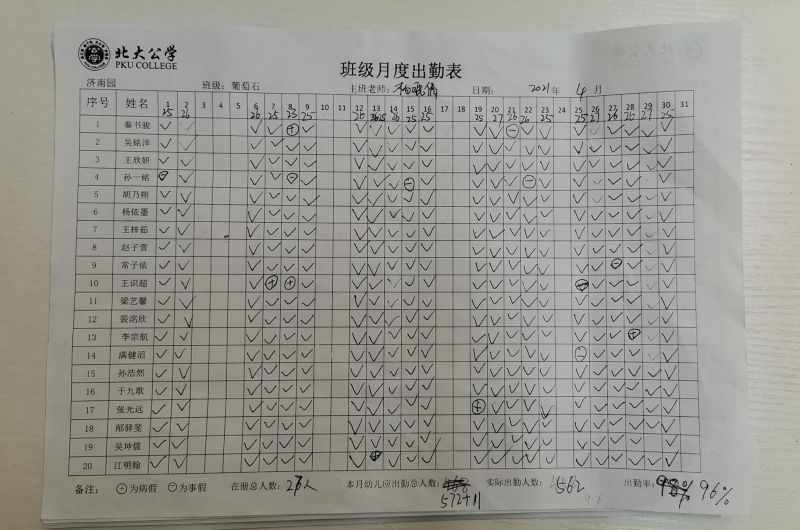 北大公学
PKU COLLEGE
班级月度出勤表
济南园 班级: 葡萄石 主班老师: 日期: 2021年 4月
序号 姓名 1 2 3 4 5 6 7 8 9 10 11 12 13 14 15 16 17 18 19 20 21 22 23 24 25 26 27 28 29 30 31
25 26 26 25 25 25 26 25 26 25 26 25 27 26 26 25 25 27 26 26 27 25
1 秦书骏
2 吴铭洋
3 王欣妍
4 孙一铭
5 胡乃朔
6 杨依墨
7 王梓茹
8 赵子萱
9 常子依
10 王识超
11 梁艺馨
12 裴洺欣
13 李宗航
14 满健滔
15 孙浩然
16 于九歌
17 张光远
18 邴驿斐
19 吴坤儒
20 江明翰
备注: ⊕为病假 ⊖为事假 在册总人数: 27人 本月幼儿应出勤总人数: 572+11 实际出勤人数: 562 出勤率: 98% 96%